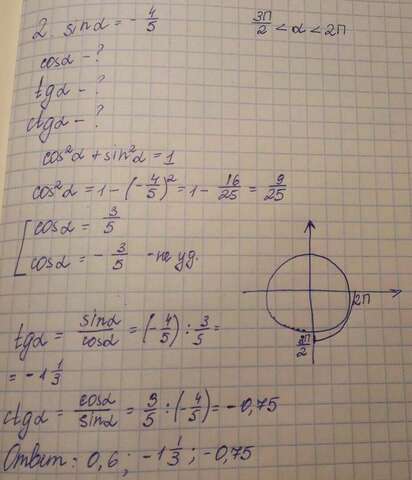 2. sinα = - 4/5    3П/2 < α < 2П
cosα - ?
tgα - ?
ctgα - ?
cos²α + sin²α = 1
cos²α = 1 - (- 4/5)² = 1 - 16/25 = 9/25
[ cosα = 3/5
cosα = - 3/5 - не уд.
2П
3П/2
tgα = sinα/cosα = (- 4/5) : 3/5 =
= -1 1/3
ctgα = cosα/sinα = 3/5 : (- 4/5) = -0,75
Ответ: 0,6; -1 1/3; -0,75